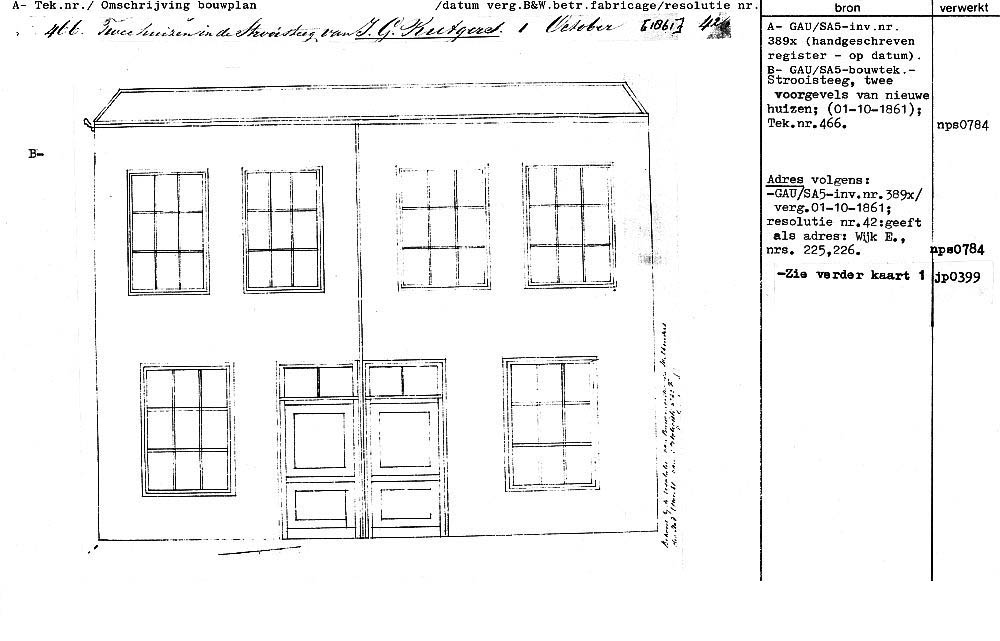 A- Tek.nr./ Omschrijving bouwplan /datum verg.B&W.betr.fabricage/resolutie nr.
466. Twee huizen in de Strooisteeg van J. G. Rutgers. 1 October [1861] 42
B-
bron
A- GAU/SA5-inv.nr.
389x (handgeschreven
register - op datum).
B- GAU/SA5-bouwtek.-
Strooisteeg, twee
voorgevels van nieuwe
huizen; (01-10-1861);
Tek.nr.466.
Adres volgens:
-GAU/SA5-inv.nr.389x/
verg.01-10-1861;
resolutie nr.42:geeft
als adres: Wijk E.,
nrs. 225,226.
-Zie verder kaart 1
verwerkt
nps0784
nps0784
jp0399